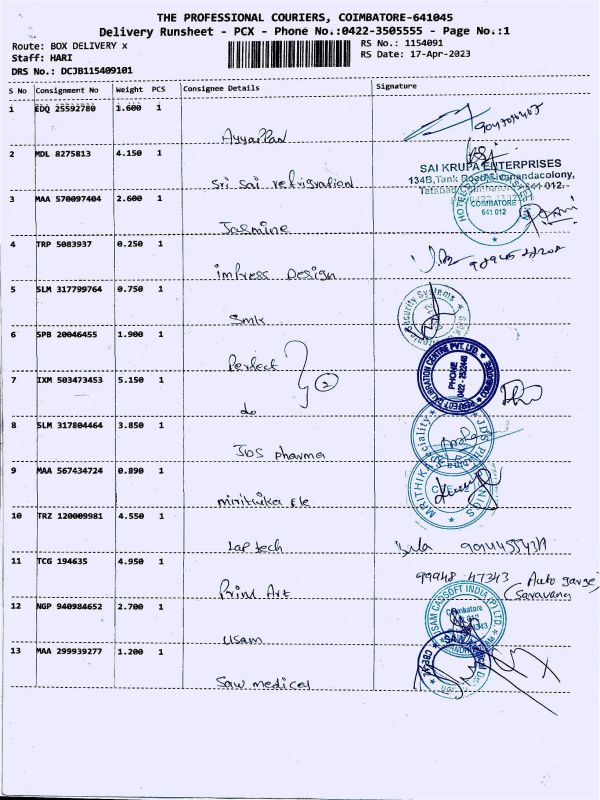 THE PROFESSIONAL COURIERS, COIMBATORE-641045
Delivery Runsheet - PCX - Phone No.:0422-3505555 - Page No.:1
Route: BOX DELIVERY x
RS No.: 1154091
Staff: HARI
RS Date: 17-Apr-2023
DRS No.: DCJB115409101
S No Consignment No Weight PCS Consignee Details Signature
1 EDQ 25592780 1.600 1
2 MDL 8275813 4.150 1
SAI KRUPA ENTERPRISES
Sri Sai refrigration
134B,Tank Road,
3 MAA 570097404 2.600 1
COIMBATORE
641 012
Jasmine
4 TRP 5083937 0.250 1
impress Design
5 SLM 317799764 0.750 1
Security Systems
Smlx
6 SPB 20046455 1.900 1
Perfect
2
PHONE
7 IXM 503473453 5.150 1
do
8 SLM 317804464 3.850 1
JDS pharma
9 MAA 567434724 0.890 1
10 TRZ 120009981 4.550 1
Lap tech
11 TCG 194635 4.950 1
99948 47343
Saravana
Print Art
12 NGP 940984652 2.700 1
USAM CADSOFT INDIA (P) LTD.
Coimbatore
Usam
13 MAA 299939277 1.200 1
Saw medical